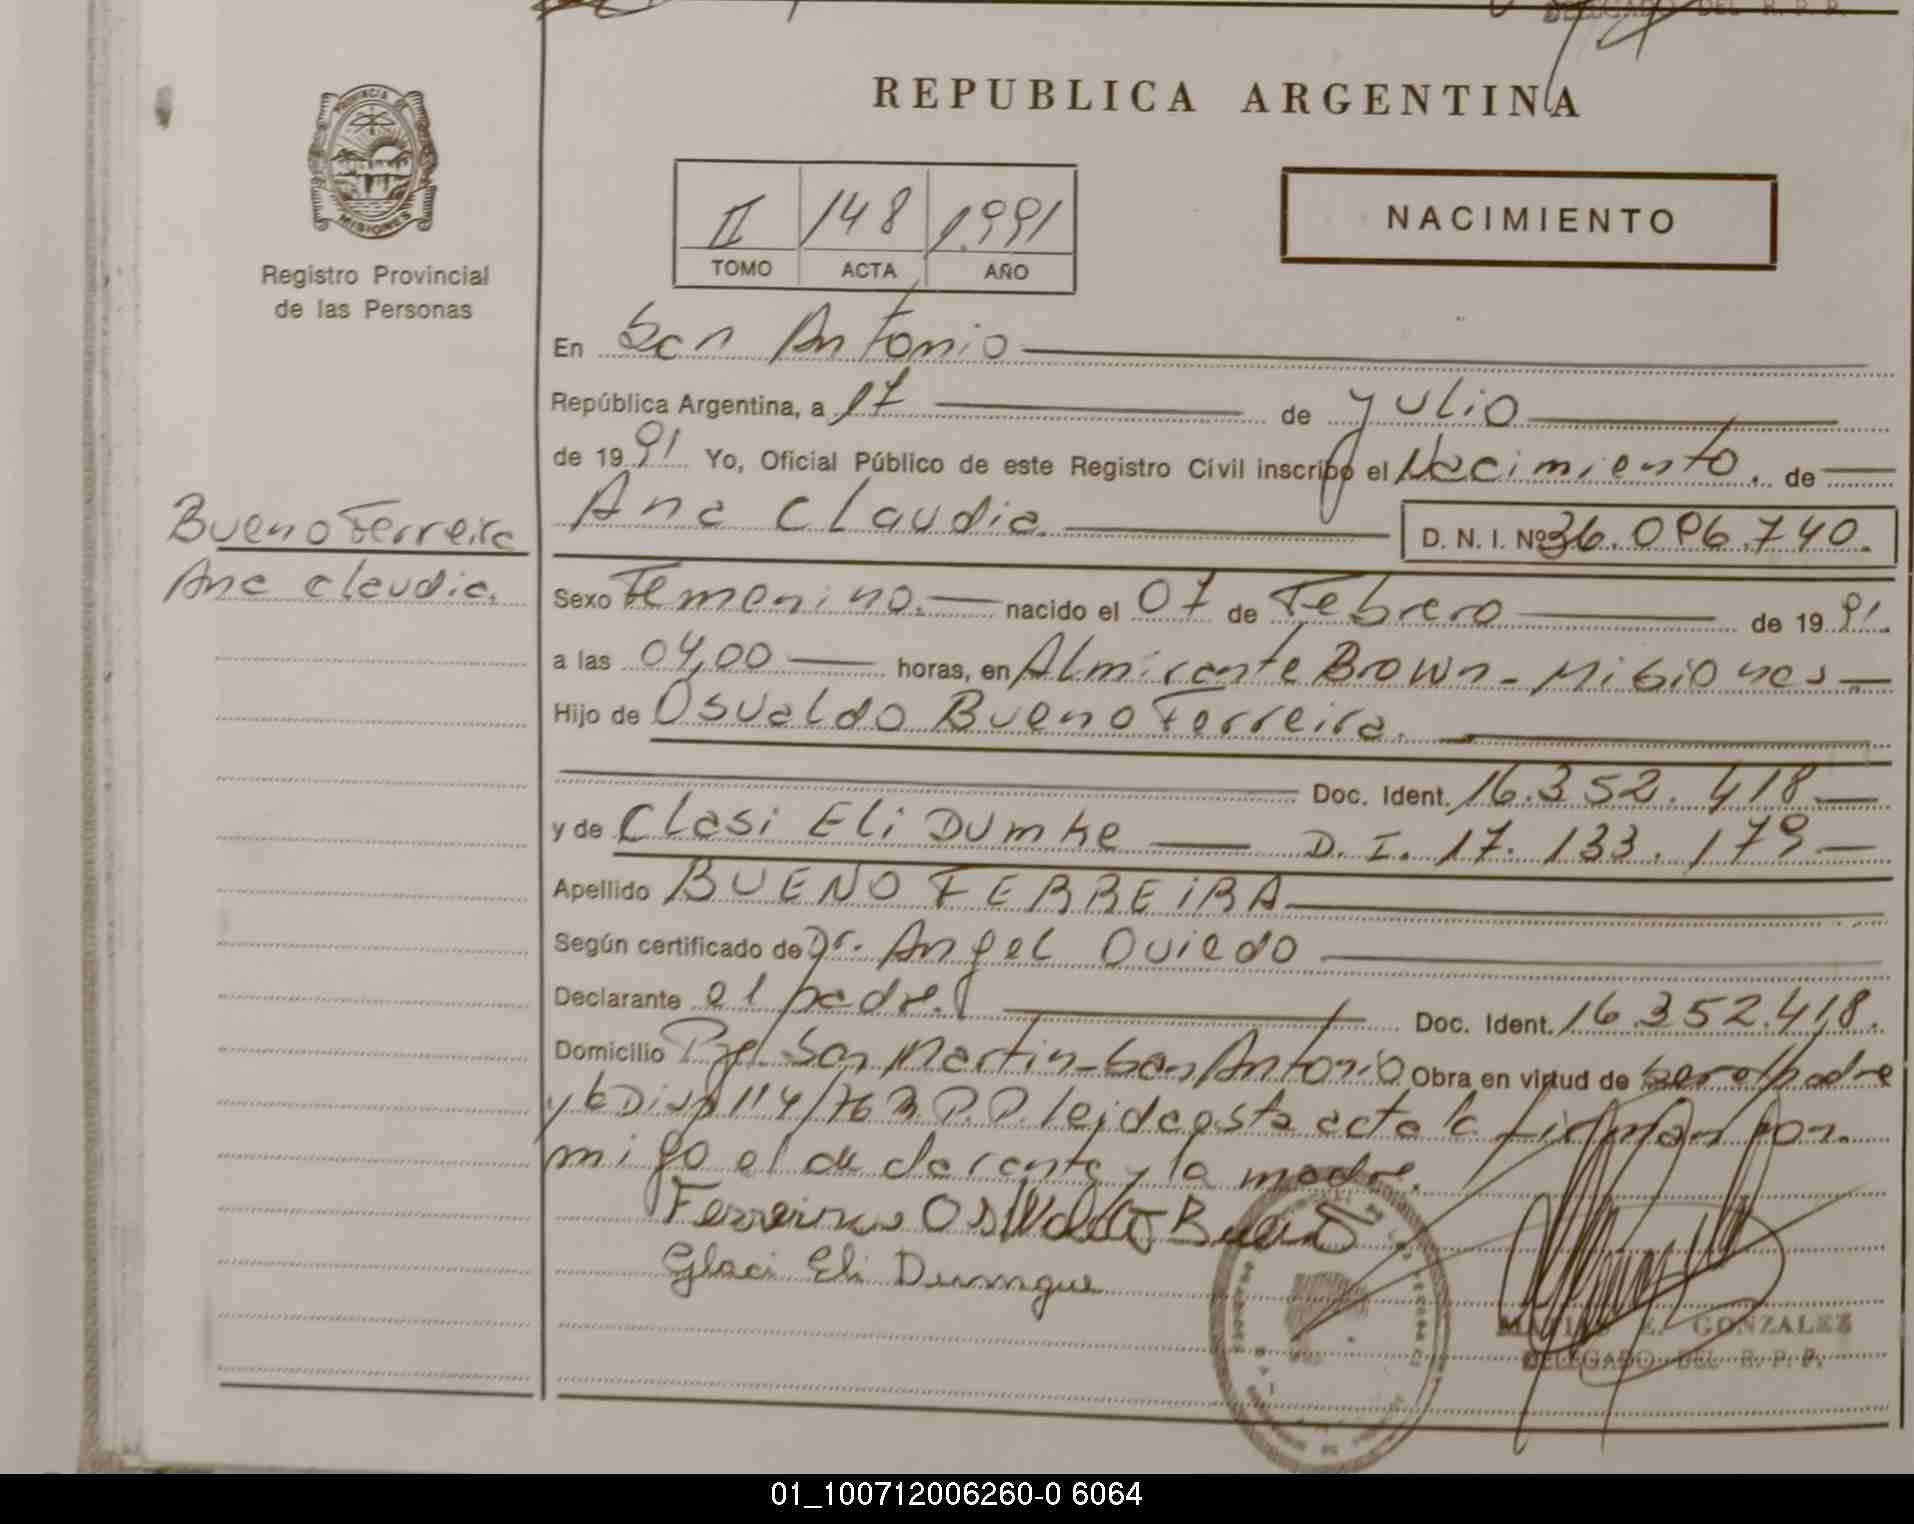 DELEGADO DEL R. P. P.
PROVINCIA DE
MISIONES
Registro Provincial
de las Personas
REPUBLICA ARGENTINA
II 148 1991
TOMO ACTA AÑO
NACIMIENTO
En San Antonio
República Argentina, a 17 de yulio
de 1991 Yo, Oficial Público de este Registro Civil inscribo el Nacimiento. de
Ana Claudia. D. N. I. Nº 36.096.740.
Bueno Ferreira
Ana Claudia.
Sexo Femenino. nacido el 07 de Febrero de 1991.
a las 04,00 horas, en Almirante Brown - Misiones
Hijo de Osvaldo Bueno Ferreira.
Doc. Ident. 16.352.418
y de Clasi Eli Dumke D. I. 17.133.179
Apellido BUENO FERREIRA
Según certificado de Dr. Angel Oviedo
Declarante el padre. Doc. Ident. 16.352.418.
Domicilio Pje. San Martin - San Antonio Obra en virtud de ser el padre
y la Disp 114/76 R.P.P. leida esta acta la firman con
migo el declarante y la madre.
Ferreira Osvaldo Bueno
Glaci Eli Dumngue
E. GONZALEZ
DELEGADO DEL R. P. P.
01_100712006260-0 6064